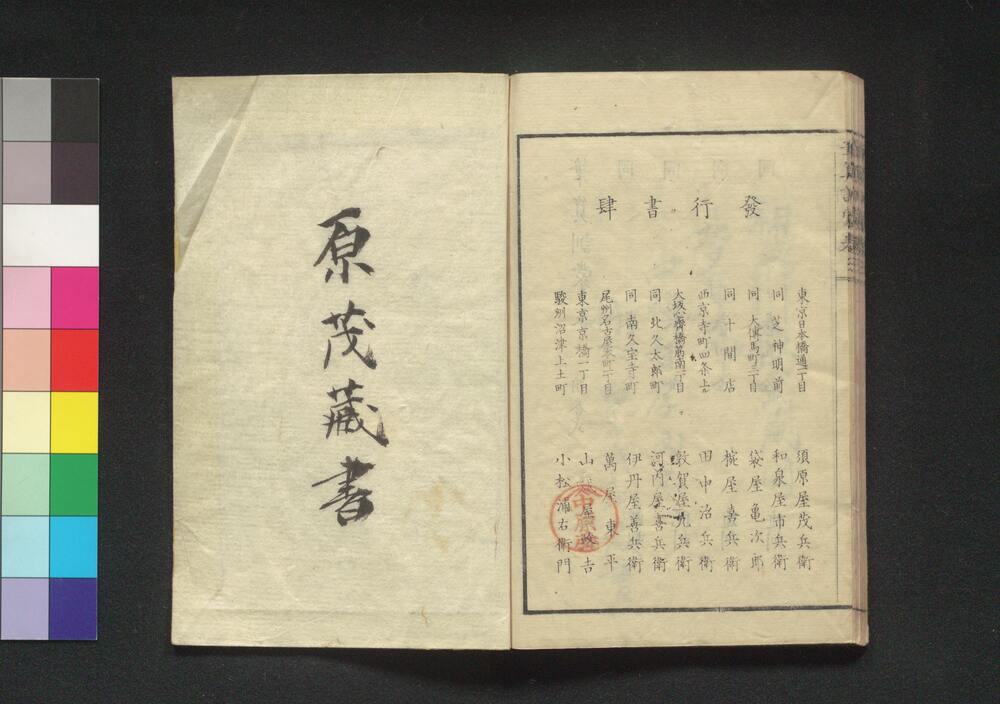 發行書肆
東京日本橋通一丁目 須原屋茂兵衛
同 芝神明前 和泉屋市兵衛
同 大傳馬町二丁目 袋屋亀次郎
同 十間店 椀屋喜兵衛
西京寺町四条上 田中治兵衛
大坂心齋橋筋南一丁目 敦賀屋九兵衛
同 北久太郎町 河内屋喜兵衛
同 南久宝寺町 伊丹屋善兵衛
尾州名古屋本町 丁目 萬屋東平
東京京橋一丁目 山 屋政吉
駿州沼津上土町 小松浦右衛門
原茂藏書